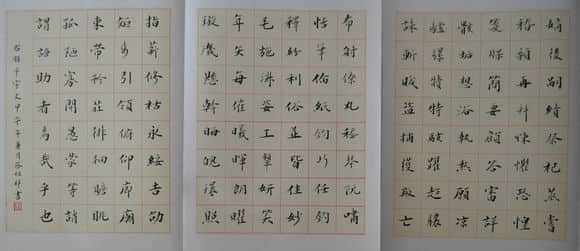 嫡後嗣續祭祀蒸嘗
稽顙再拜悚懼恐惶
箋牒簡要顧答審詳
骸垢想浴執熱願涼
驢騾犢特駭躍超驤
誅斬賊盜捕獲叛亡
布射僚丸嵇琴阮嘯
恬筆倫紙鈞巧任釣
釋紛利俗並皆佳妙
毛施淑姿工顰妍笑
年矢每催曦暉朗曜
璇璣懸斡晦魄環照
指薪修祜永綏吉劭
矩步引領俯仰廊廟
束帶矜莊徘徊瞻眺
孤陋寡聞愚蒙等誚
謂語助者焉哉乎也
右錄千字文甲午年月書